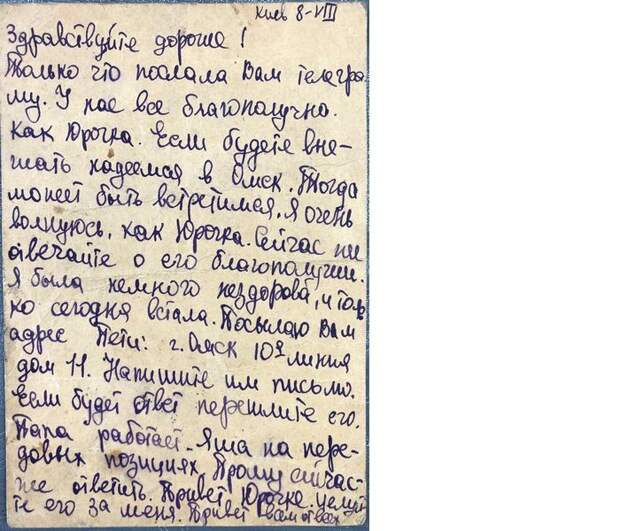 Киев 8-VIII
Здравствуйте дорогие!
Только что послала Вам телегра
му. У нас все благополучно.
Как Юрочка. Если будете вые-
зжать надеемся в Омск. Тогда
может быть встретимся. Я очень
волнуюсь, как Юрочка. Сейчас же
отвечайте о его благополучии.
Я была немного нездорова, и толь
ко сегодня встала. Посылаю Вам
адрес Пети: г. Омск 10я линия
дом 11. Напишите им письмо.
Если будет ответ перешлите его.
Папа работает. Яша на пере-
довых позициях. Прошу сейчас-
же ответить. Привет Юрочке. целуй
те его за меня. Привет вам от всех